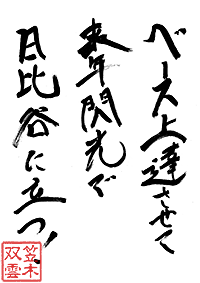 ベース上達させて
来年閃光で
日比谷に立つ!
笠木
双雲